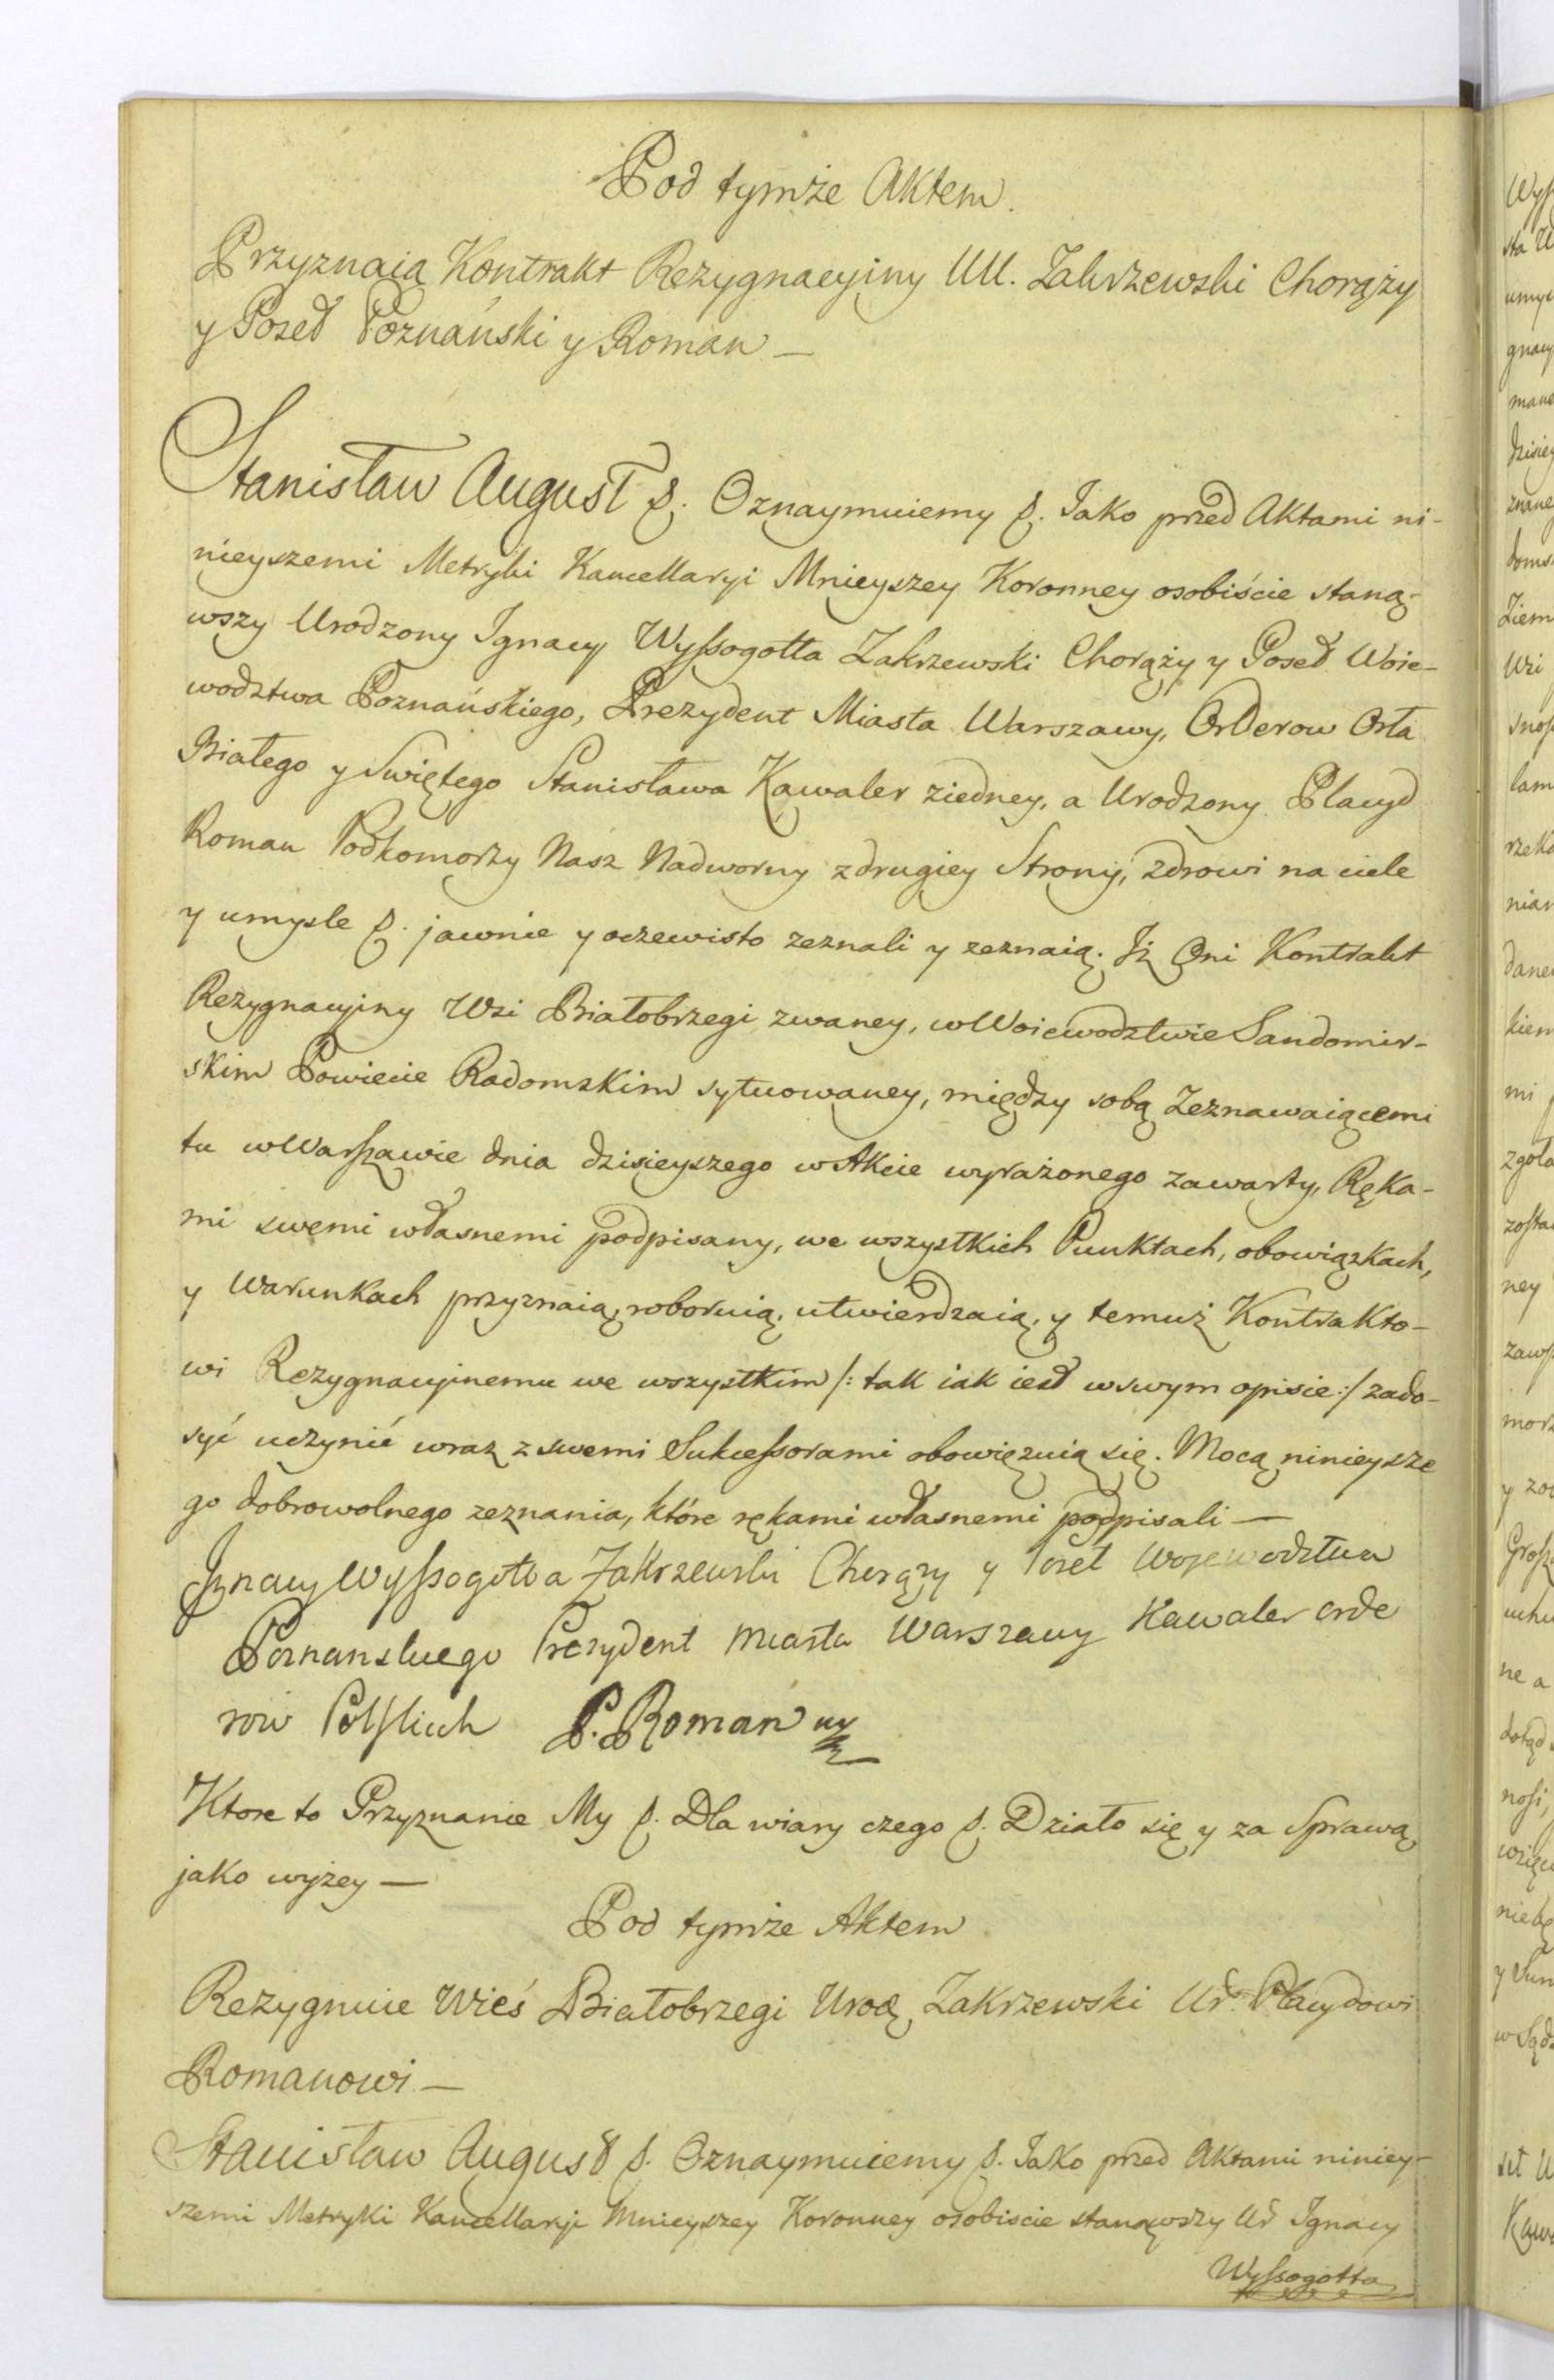 Pod tymże Aktem.
Przyznaią Kontrakt Rezygnacyiny UU. Zakrzewski Chorąży
y Poseł Poznański y Roman —
Stanisław August &. Oznaymuiemy &. Jako przed Aktami ni-
nieyszemi Metryki Kancellaryi Mnieyszey Koronney osobiście staną-
wszy Urodzony Ignacy Wyssogotta Zakrzewski Chorąży y Poseł Woie-
wodztwa Poznańskiego, Prezydent Miasta Warszawy, Orderow Orła
Białego y Swiętego Stanisława Kawaler ziedney, a Urodzony Placyd
Roman Podkomorzy Nasz Nadworny zdrugiey Strony, zdrowi na ciele
y umysle &. jawnie y oczewisto zeznali y zeznaią. Iż Oni Kontrakt
Rezygnacyiny Wsi Białobrzegi zwaney, wWoiewodztwie Sandomir-
skim Powiecie Radomskim sytuowaney, między sobą Zeznawaiącemi
tu wWarszawie dnia dzisieyszego wAkcie wyrażonego zawarty, Ręka-
mi swemi własnemi podpisany, we wszystkich Punktach, obowiązkach,
y Warunkach przyznaią, roboruią, utwierdzaią, y temuż Kontrakto-
wi Rezygnacyinemu we wszystkim /: tak iak iest wswym opisie :/ zado-
syć uczynić wraz z swemi Sukcessorami obowięzuią się. Mocą ninieysze
go dobrowolnego zeznania, które rękami własnemi podpisali —
Ignacy Wyssogotta Zakrzewski Chorąży y Poseł Wojewodztwa
Poznanskiego Prezydent Miasta Warszawy Kawaler orde
row Polskich P. Roman
Ktore to Przyznanie My &. Dla wiary czego &. Działo się y za Sprawą
jako wyżey —
Pod tymże Aktem
Rezygnuie Wieś Białobrzegi Urod. Zakrzewski Ur. Placydowi
Romanowi —
Stanisław August &. Oznaymuiemy &. Jako przed Aktami niniey-
szemi Metryki Kancellaryi Mnieyszey Koronney osobiscie stanąwszy Ur Ignacy
Wyssogotta